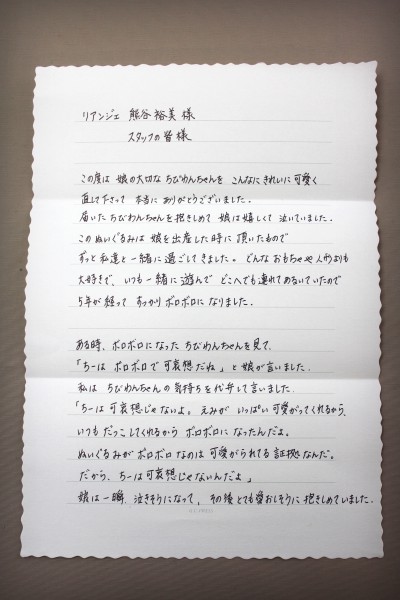 リアンジェ 熊谷 裕美 様
スタッフの皆様
この度は 娘の大切な ちびわんちゃんを こんなにきれいに可愛く
直して下さって 本当に ありがとうございました。
届いた ちびわんちゃんを 抱きしめて 娘は 嬉しくて 泣いていました。
このぬいぐるみは 娘を出産した時に 頂いたもので
ずっと私達と一緒に過ごしてきました。どんなおもちゃや人形よりも
大好きで、いつも一緒に遊んで どこへでも連れてあるいていたので
5年が経って すっかりボロボロに なりました。
ある時、ボロボロになった ちびわんちゃんを見て、
「ちーは ボロボロで可哀想だね」と 娘が言いました。
私は ちびわんちゃんの気持ちを代弁して言いました。
「ちーは 可哀想じゃないよ。えみが いっぱい 可愛がってくれるから、
いつもだっこしてくれるから ボロボロに なったんだよ。
ぬいぐるみが ボロボロ なのは 可愛がられてる 証拠なんだ。
だから、ちーは可哀想じゃないんだよ」
娘は一瞬 泣きそうになって、その後とても愛おしそうに 抱きしめていました。